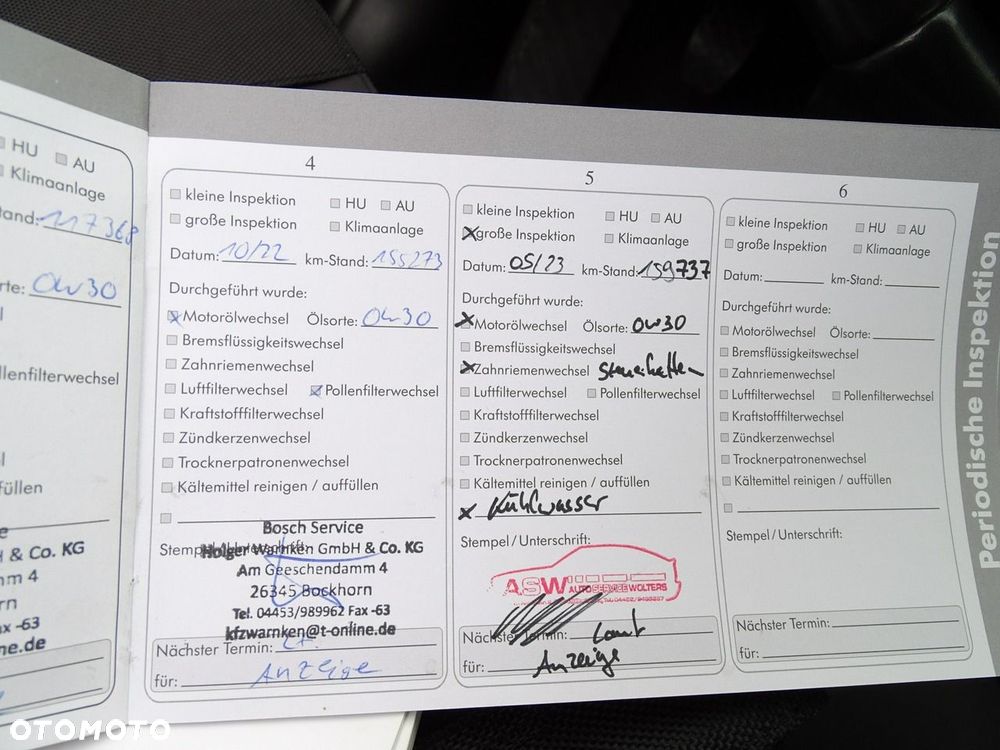 HU AU
Klimaanlage
tand: 117368
rte: 0W30
llenfilterwechsel
füllen
& Co. KG
mm 4
rn
x -63
ne.de
4
kleine Inspektion HU AU
große Inspektion Klimaanlage
Datum: 10/22 km-Stand: 155273
Durchgeführt wurde:
x Motorölwechsel Ölsorte: 0W30
Bremsflüssigkeitswechsel
Zahnriemenwechsel
Luftfilterwechsel x Pollenfilterwechsel
Kraftstofffilterwechsel
Zündkerzenwechsel
Trocknerpatronenwechsel
Kältemittel reinigen / auffüllen
Bosch Service
Holger Warnken GmbH & Co. KG
Am Geeschendamm 4
26345 Bockhorn
Tel. 04453/989962 Fax -63
kfzwarnken@t-online.de
Nächster Termin: Lt.
für: Anzeige
5
kleine Inspektion HU AU
x große Inspektion Klimaanlage
Datum: 05/23 km-Stand: 159737
Durchgeführt wurde:
x Motorölwechsel Ölsorte: 0W30
Bremsflüssigkeitswechsel
x Zahnriemenwechsel
Luftfilterwechsel Pollenfilterwechsel
Kraftstofffilterwechsel
Zündkerzenwechsel
Trocknerpatronenwechsel
Kältemittel reinigen / auffüllen
x Kühlwasser
Stempel / Unterschrift:
ASW AUTOSERVICE WOLTERS
Nächster Termin: Laut
für: Anzeige
6
kleine Inspektion HU AU
große Inspektion Klimaanlage
Datum: km-Stand:
Durchgeführt wurde:
Motorölwechsel Ölsorte:
Bremsflüssigkeitswechsel
Zahnriemenwechsel
Luftfilterwechsel Pollenfilterwechsel
Kraftstofffilterwechsel
Zündkerzenwechsel
Trocknerpatronenwechsel
Kältemittel reinigen / auffüllen
Stempel / Unterschrift:
Nächster Termin:
für:
Periodische Inspektion
OTOMOTO